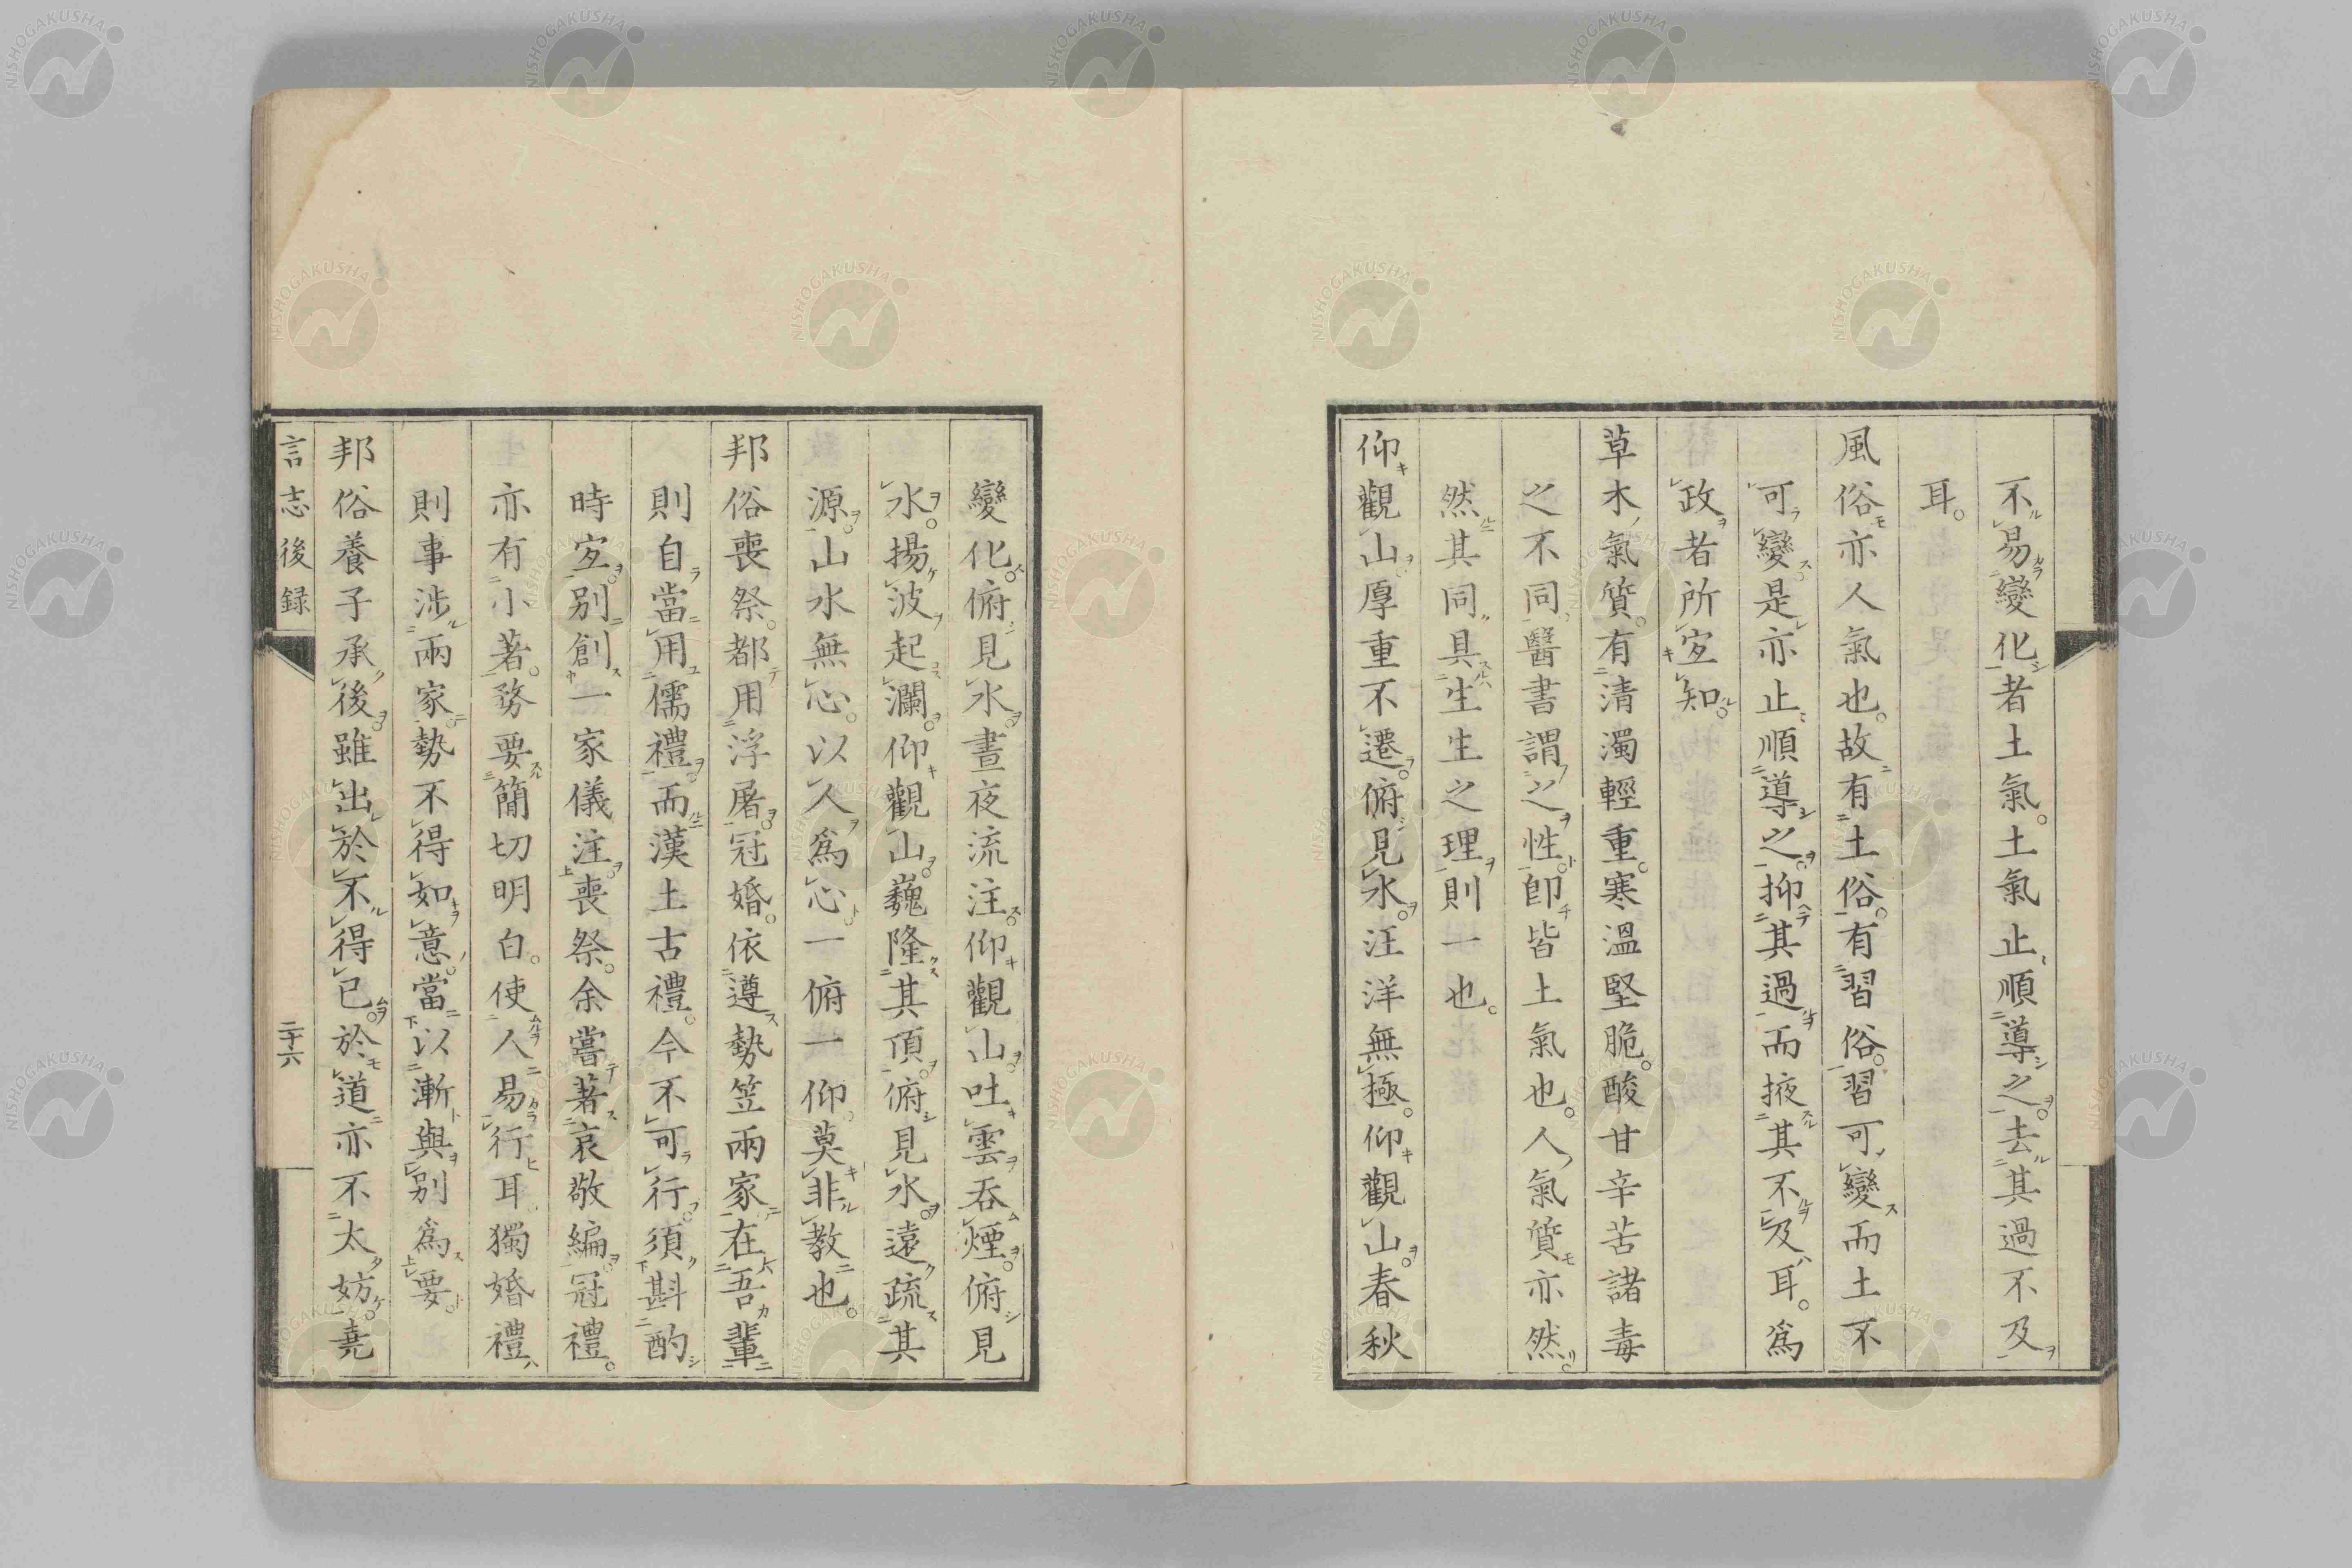 不易變化者土氣。土氣止順導之。去其過不及
耳。
風俗亦人氣也。故有土俗。有習俗。習可變而土不
可變。是亦止順導之。抑其過而掖其不及耳。爲
政者所宜知。
草木氣質。有清濁輕重。寒溫堅脆。酸甘辛苦諸毒
之不同。醫書謂之性。卽皆土氣也。人氣質亦然。
然其同具生生之理。則一也。
仰觀山。厚重不遷。俯見水。汪洋無極。仰觀山。春秋
變化。俯見水。晝夜流注。仰觀山。吐雲吞煙。俯見
水。揚波起瀾。仰觀山。巍隆其頂。俯見水。遠疏其
源。山水無心。以人爲心。一俯一仰。莫非教也。
邦俗喪祭。都用浮屠。冠婚。依遵勢笠兩家。在吾輩
則自當用儒禮。而漢土古禮。今不可行。須斟酌
時宜。別創一家儀注。喪祭。余嘗著哀敬編。冠禮。
亦有小著。務要簡切明白。使人易行耳。獨婚禮
則事涉兩家。勢不得如意。當以漸與別爲要。
邦俗養子承後。雖出於不得已。於道亦不太妨。堯
言志後録
二十六
NISHOGAKUSHA